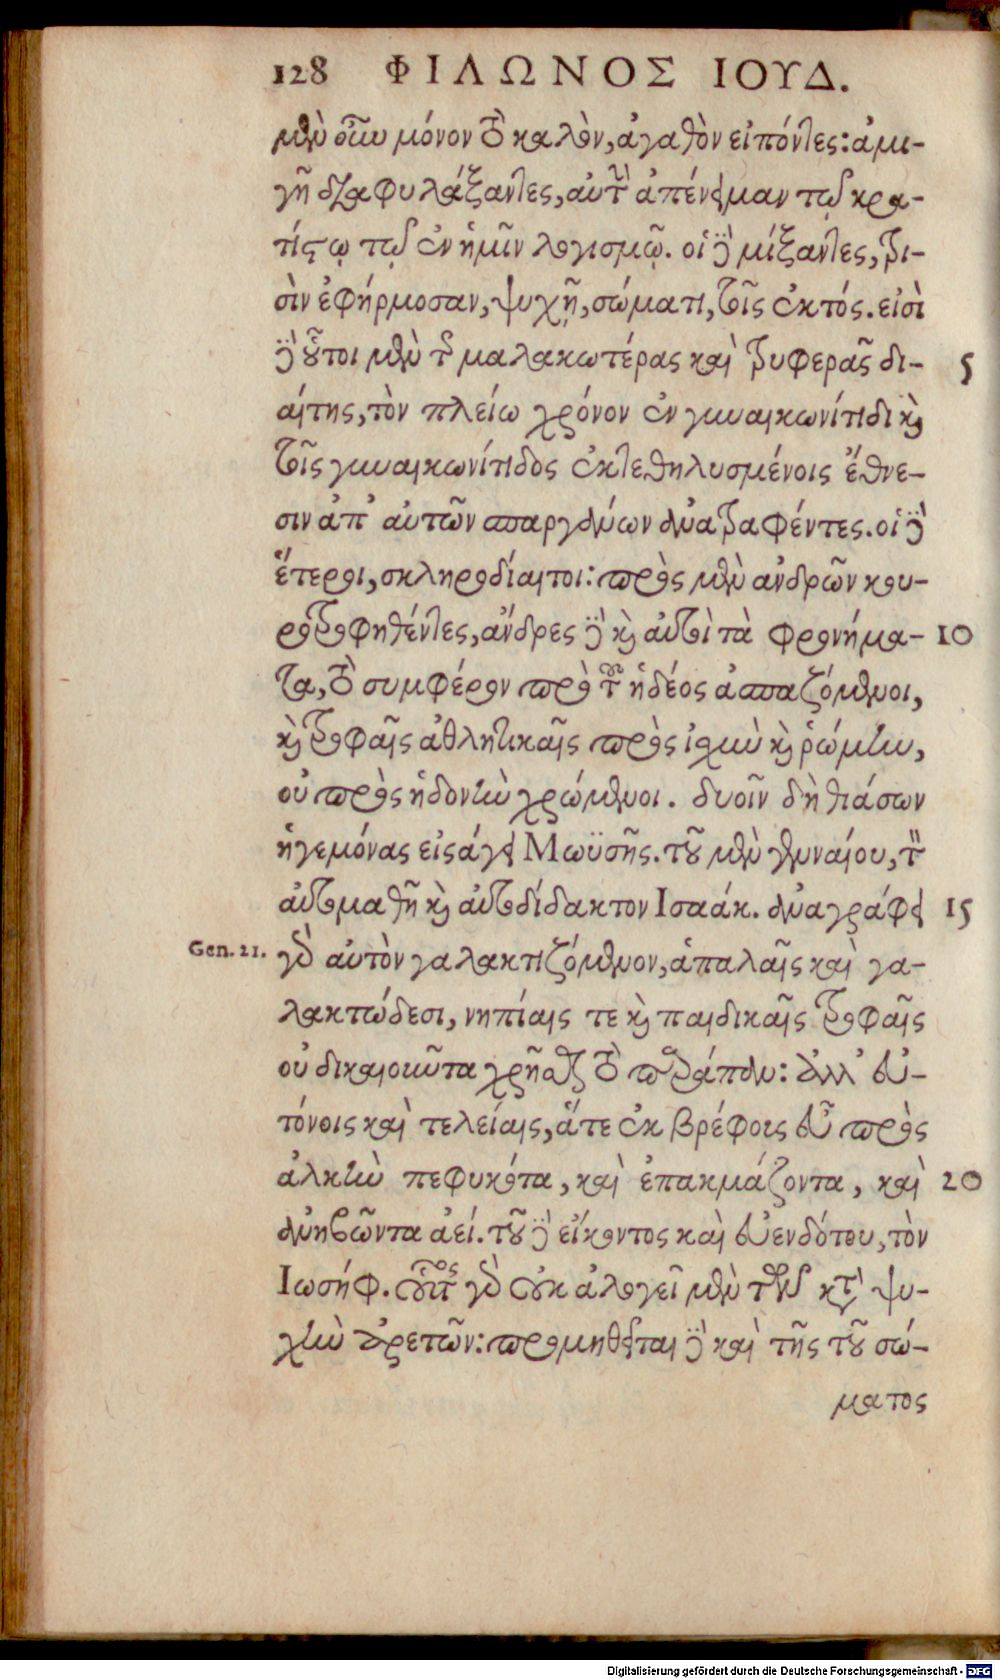 128 ΦΙΛΩΝΟΣ ΙΟΥΔ.
μὲν οὖν μόνον τὸ καλὸν, ἀγαθὸν εἰπόντες: ἀμι-
γῆ διαφυλάξαντες, αὐτὸ ἀπένειμαν τῷ κρα-
τίστῳ τῷ ἐν ἡμῖν λογισμῷ. οἱ δὲ μίξαντες, τρι-
σὶν ἐφήρμοσαν, ψυχῇ, σώματι, τοῖς ἐκτός. εἰσὶ
δὲ οὗτοι μὲν τῆς μαλακωτέρας καὶ τρυφερᾶς δι- 5
αίτης, τὸν πλείω χρόνον ἐν γυναικωνίτιδι καὶ
τοῖς γυναικωνίτιδος ἐκτεθηλυσμένοις ἔθνε-
σιν ἀπ' αὐτῶν σπαργάνων ἀνατραφέντες. οἱ δὲ
ἕτεροι, σκληροδίαιτοι: πρὸς μὲν ἀνδρῶν κου-
ροτροφηθέντες, ἄνδρες δὲ καὶ αὐτοὶ τὰ φρονήμα- 10
τα, τὸ συμφέρον πρὸ τοῦ ἡδέος ἀσπαζόμενοι,
καὶ τροφαῖς ἀθλητικαῖς πρὸς ἰσχὺν καὶ ῥώμην,
οὐ πρὸς ἡδονὴν χρώμενοι. δυοῖν δὴ θιάσων
ἡγεμόνας εἰσάγει Μωϋσῆς. τοῦ μὲν γενναίου, τὸν
αὐτομαθῆ καὶ αὐτοδίδακτον Ισαάκ. ἀναγράφει 15
Gen. 21. γὰρ αὐτὸν γαλακτιζόμενον, ἁπαλαῖς καὶ γα-
λακτώδεσι, νηπίαις τε καὶ παιδικαῖς τροφαῖς
οὐ δικαιοῦντα χρῆσθαι τὸ παράπαν: ἀλλ' εὐ-
τόνοις καὶ τελείαις, ἅτε ἐκ βρέφους εὖ πρὸς
ἀλκὴν πεφυκότα, καὶ ἐπακμάζοντα, καὶ 20
ἀνηβῶντα ἀεί. τοῦ δὲ εἴκοντος καὶ εὐενδότου, τὸν
Ιωσήφ. οὗτος γὰρ οὐκ ἀλογεῖ μὲν τῶν κατὰ ψυ-
χὴν ἀρετῶν: προμηθεῖται δὲ καὶ τῆς τοῦ σώ-
ματος
Digitalisierung gefördert durch die Deutsche Forschungsgemeinschaft - DFG